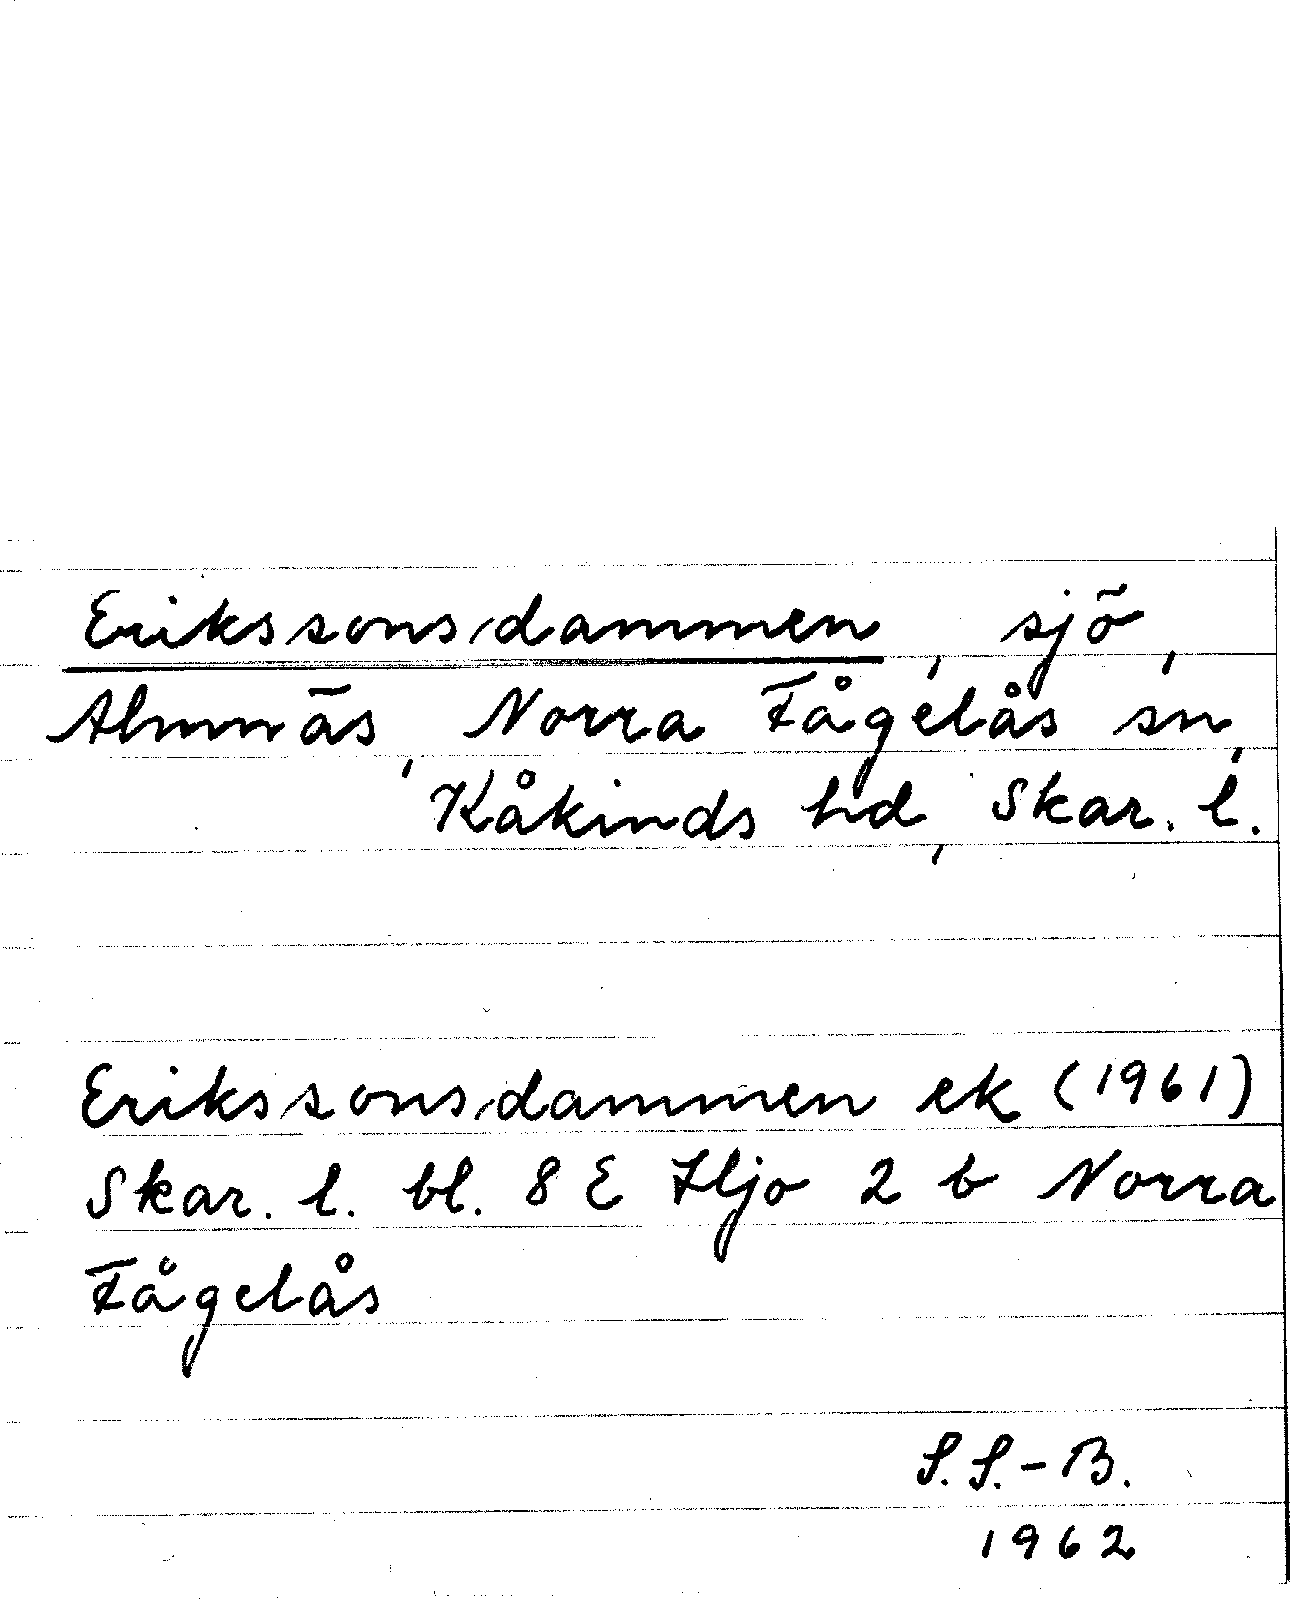 Erikssonsdammen, sjö,
Almnäs, Norra Fågelås sn,
Kåkinds hd, Skar. l.
Erikssonsdammen ek (1961)
Skar. l. bl. 8 E Hjo 2 b Norra
Fågelås
S.S.-B.
1962